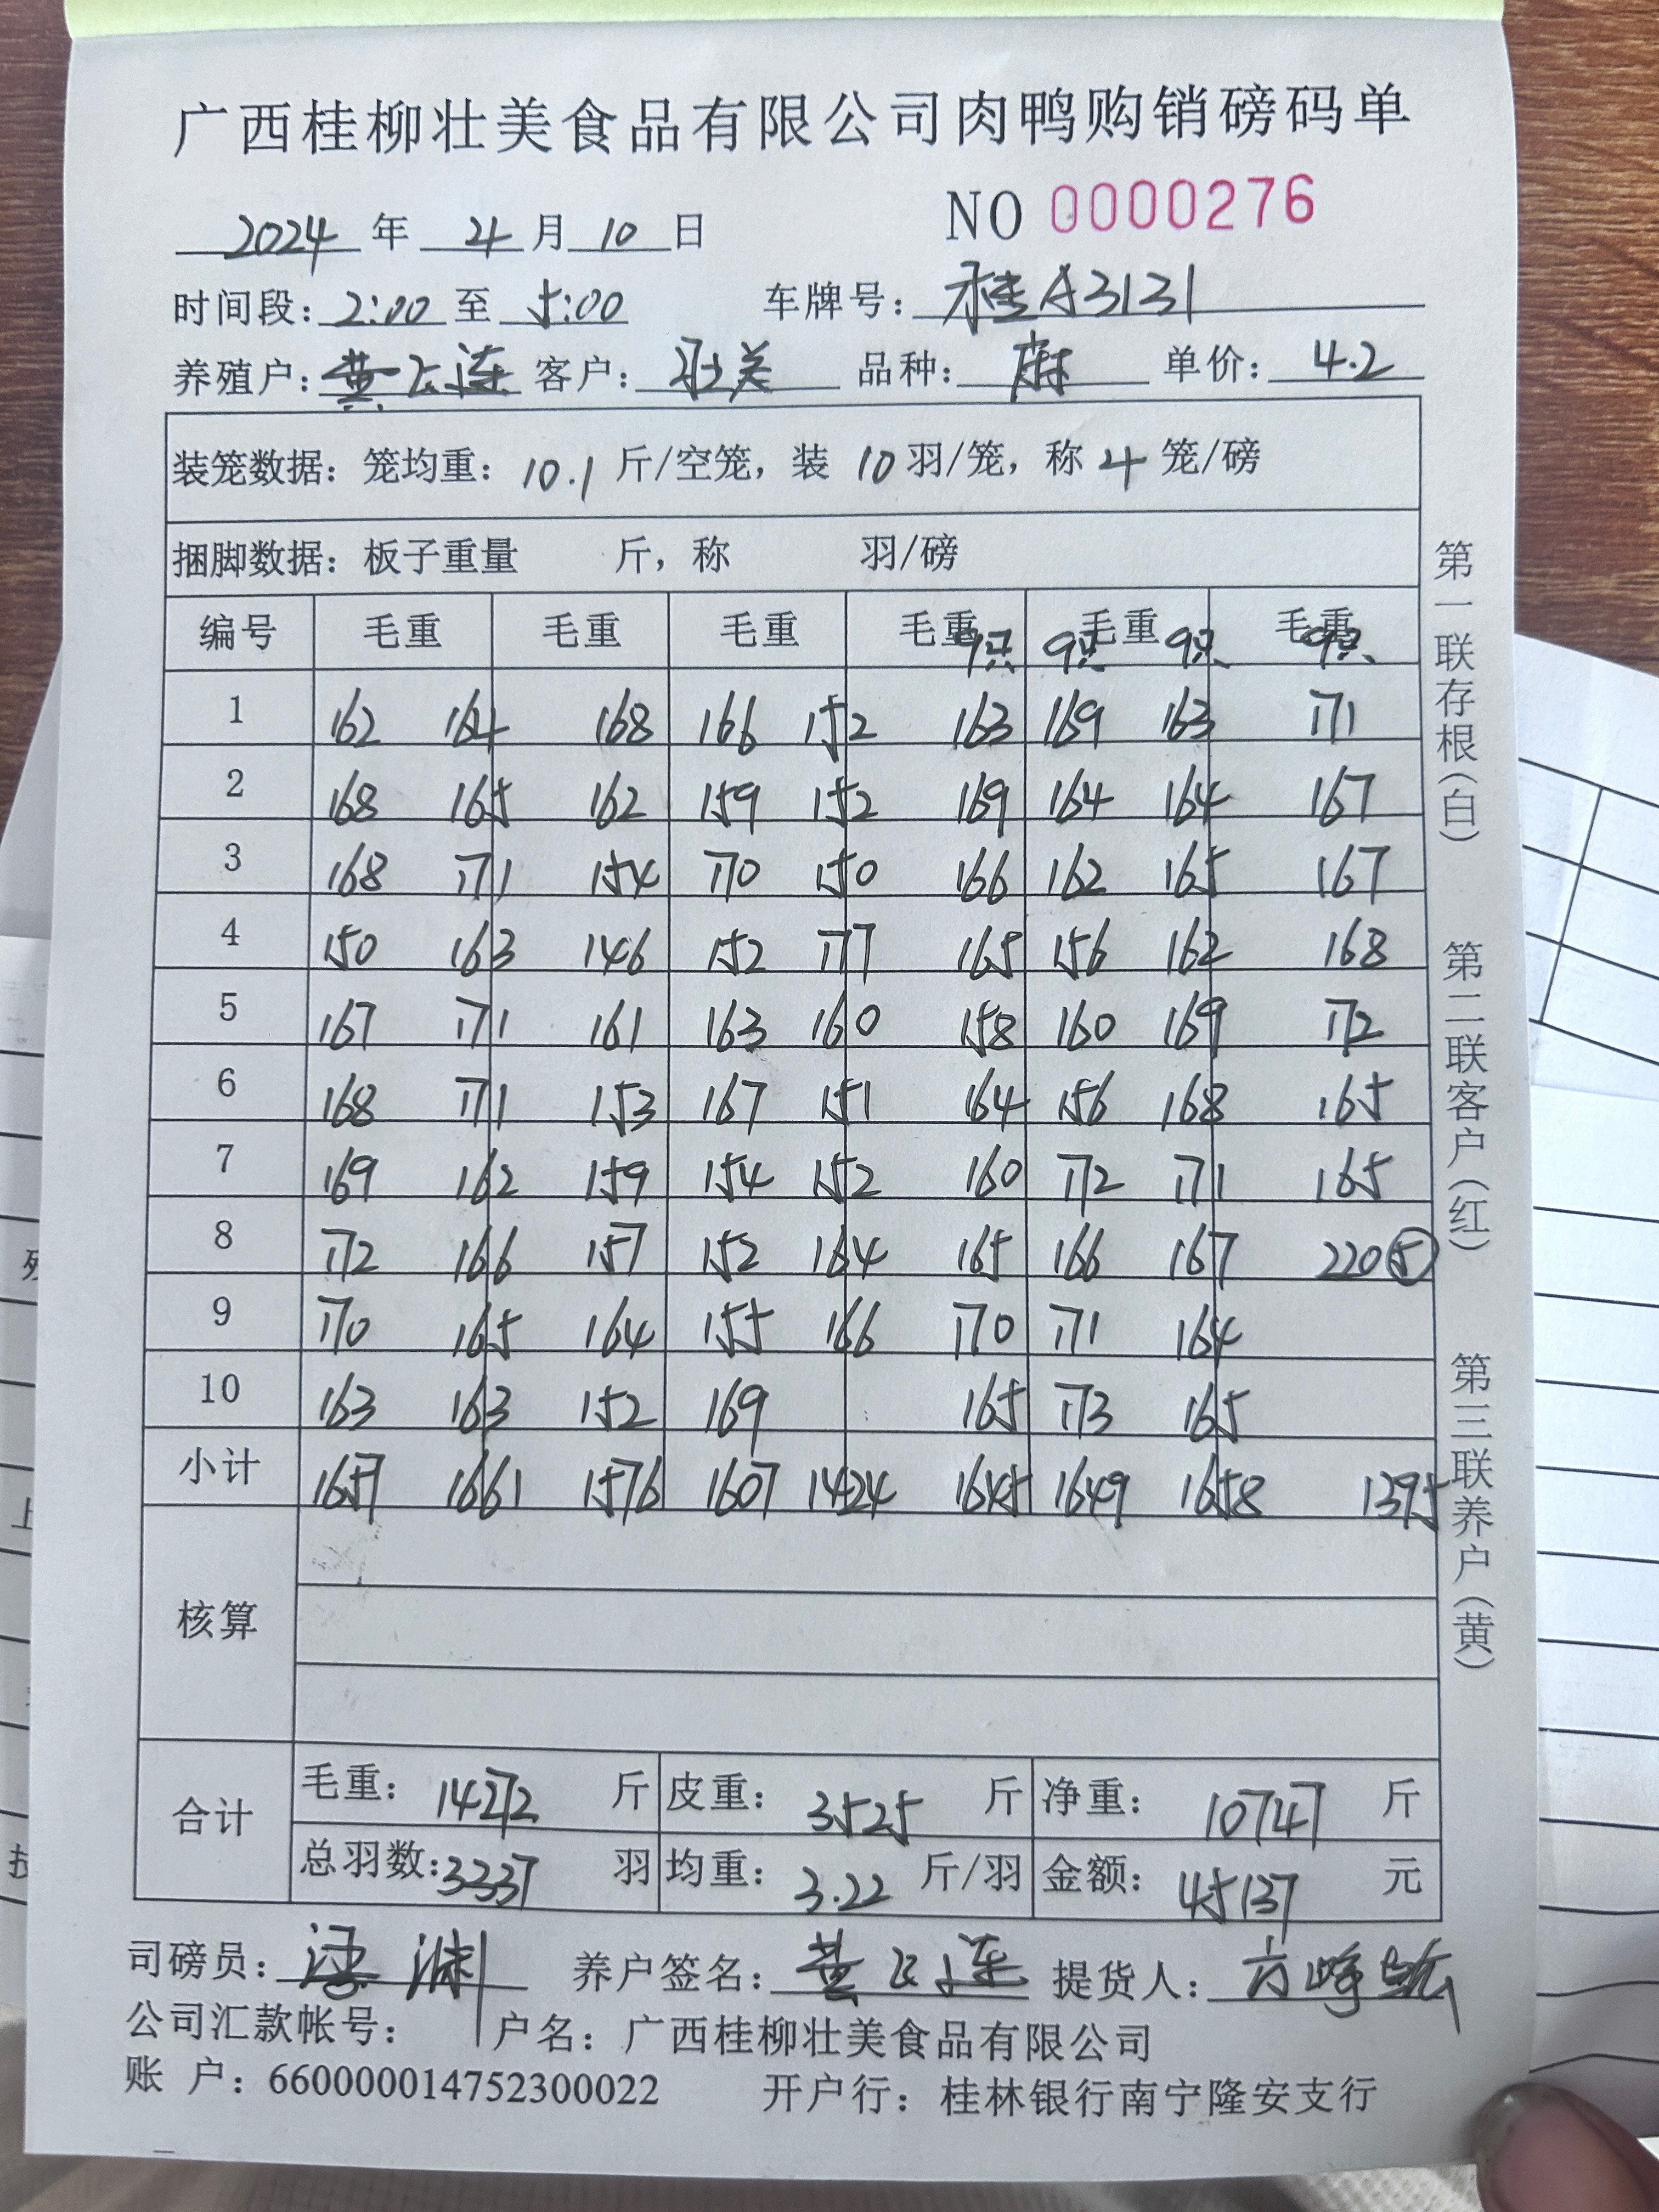 广西桂柳壮美食品有限公司肉鸭购销磅码单
NO 0000276
2024 年 4 月 10 日
时间段: 2:00 至 5:00 车牌号: 桂A3131
养殖户: 黄飞连 客户: 壮美 品种: 麻 单价: 4.2
装笼数据: 笼均重: 10.1 斤/空笼, 装 10 羽/笼, 称 4 笼/磅
捆脚数据: 板子重量 斤, 称 羽/磅
编号 毛重 毛重 毛重 毛重 毛重 毛重
9只 9只 9只 9只
1 162 164 168 166 152 163 169 163 171
2 168 165 162 159 152 169 164 164 167
3 168 171 154 170 150 166 162 165 167
4 150 163 146 152 177 165 156 162 168
5 167 171 161 163 160 158 160 169 172
6 168 171 153 167 151 164 156 168 165
7 169 162 159 154 152 160 172 171 165
8 172 166 157 152 164 165 166 167 220⑤
9 170 165 164 155 166 170 171 164
10 163 163 152 169 165 173 165
小计 1657 1661 1576 1607 1424 1645 1649 1658 1395
核算
合计
毛重: 14272 斤 皮重: 3525 斤 净重: 10747 斤
总羽数: 3337 羽 均重: 3.22 斤/羽 金额: 45137 元
司磅员: 养户签名: 黄飞连 提货人:
公司汇款帐号: 户名: 广西桂柳壮美食品有限公司
账 户: 660000014752300022 开户行: 桂林银行南宁隆安支行
第一联存根(白)
第二联客户(红)
第三联养户(黄)